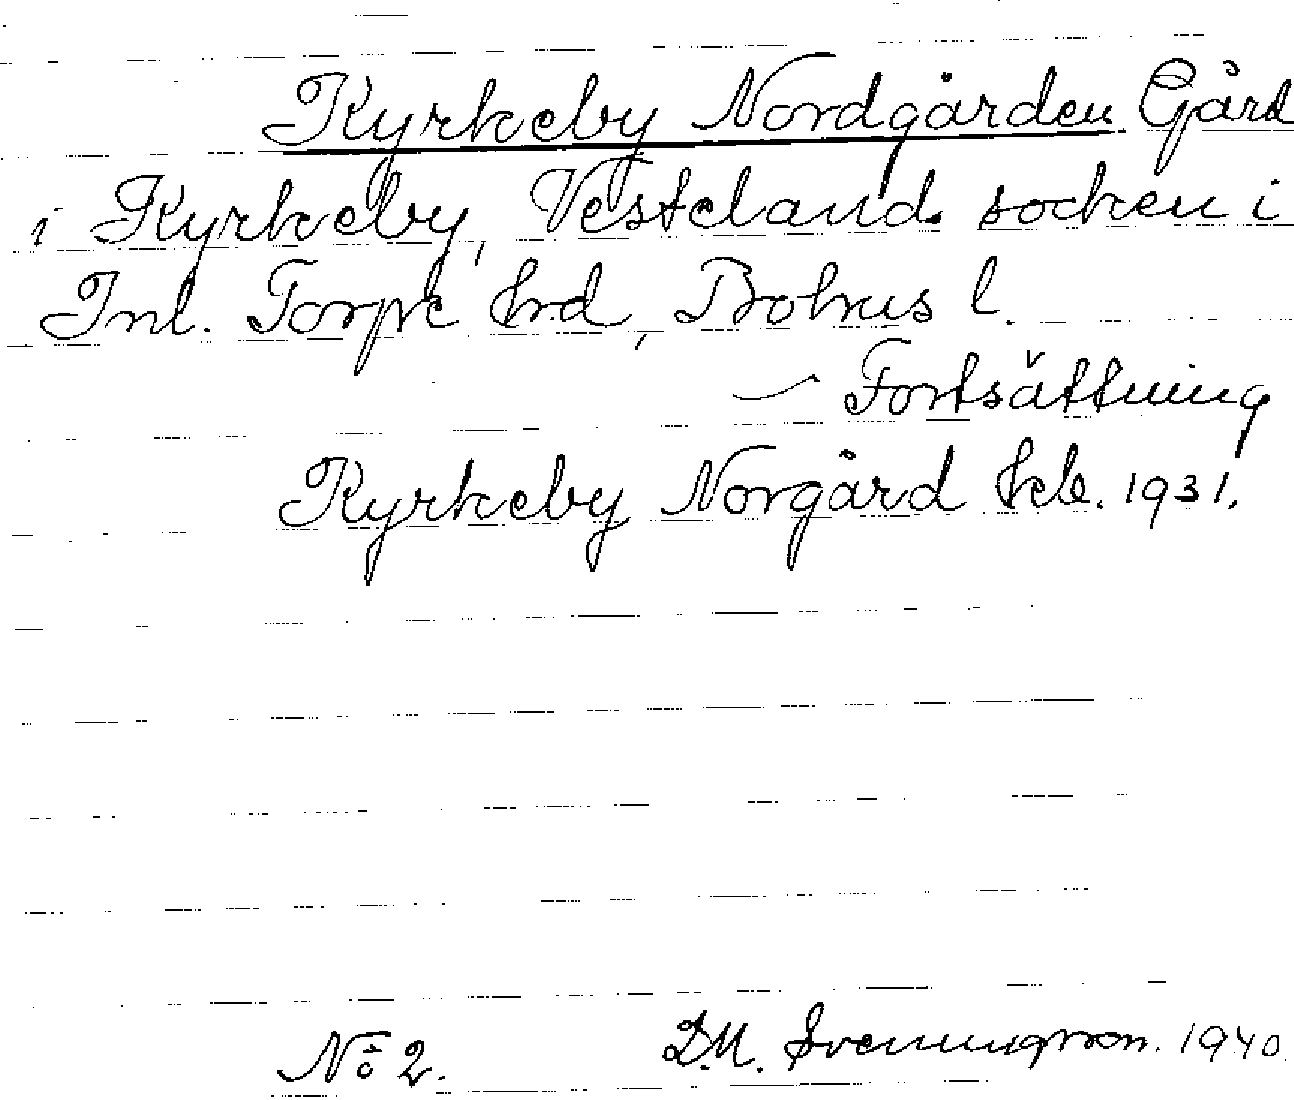 Kyrkeby Nordgården Gård
i Kyrkeby, Västerland socken i
Inl. Torpe hrd, Bohus l.
— Fortsättning
Kyrkeby Norgård Kb. 1931.
No 2. D.M. Svenningsson. 1940